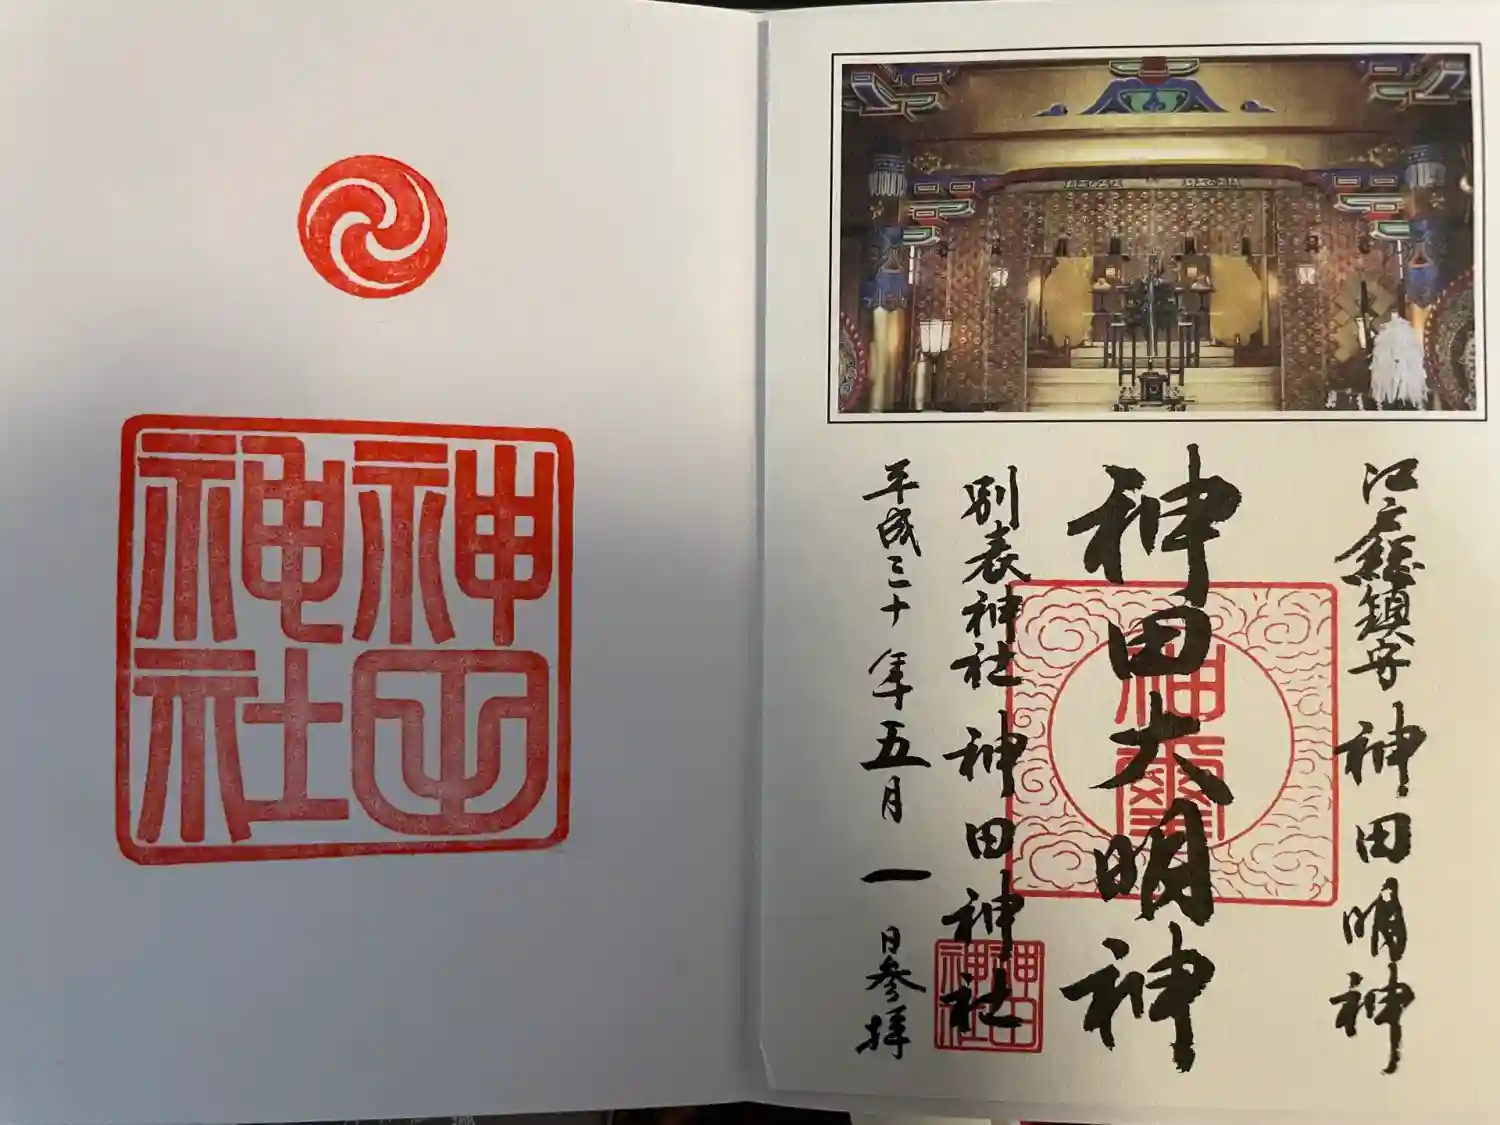 江戸總鎮守 神田明神
神田大明神
神璽
別表神社 神田神社
神田神社
平成三十年五月一日参拝
神田神社